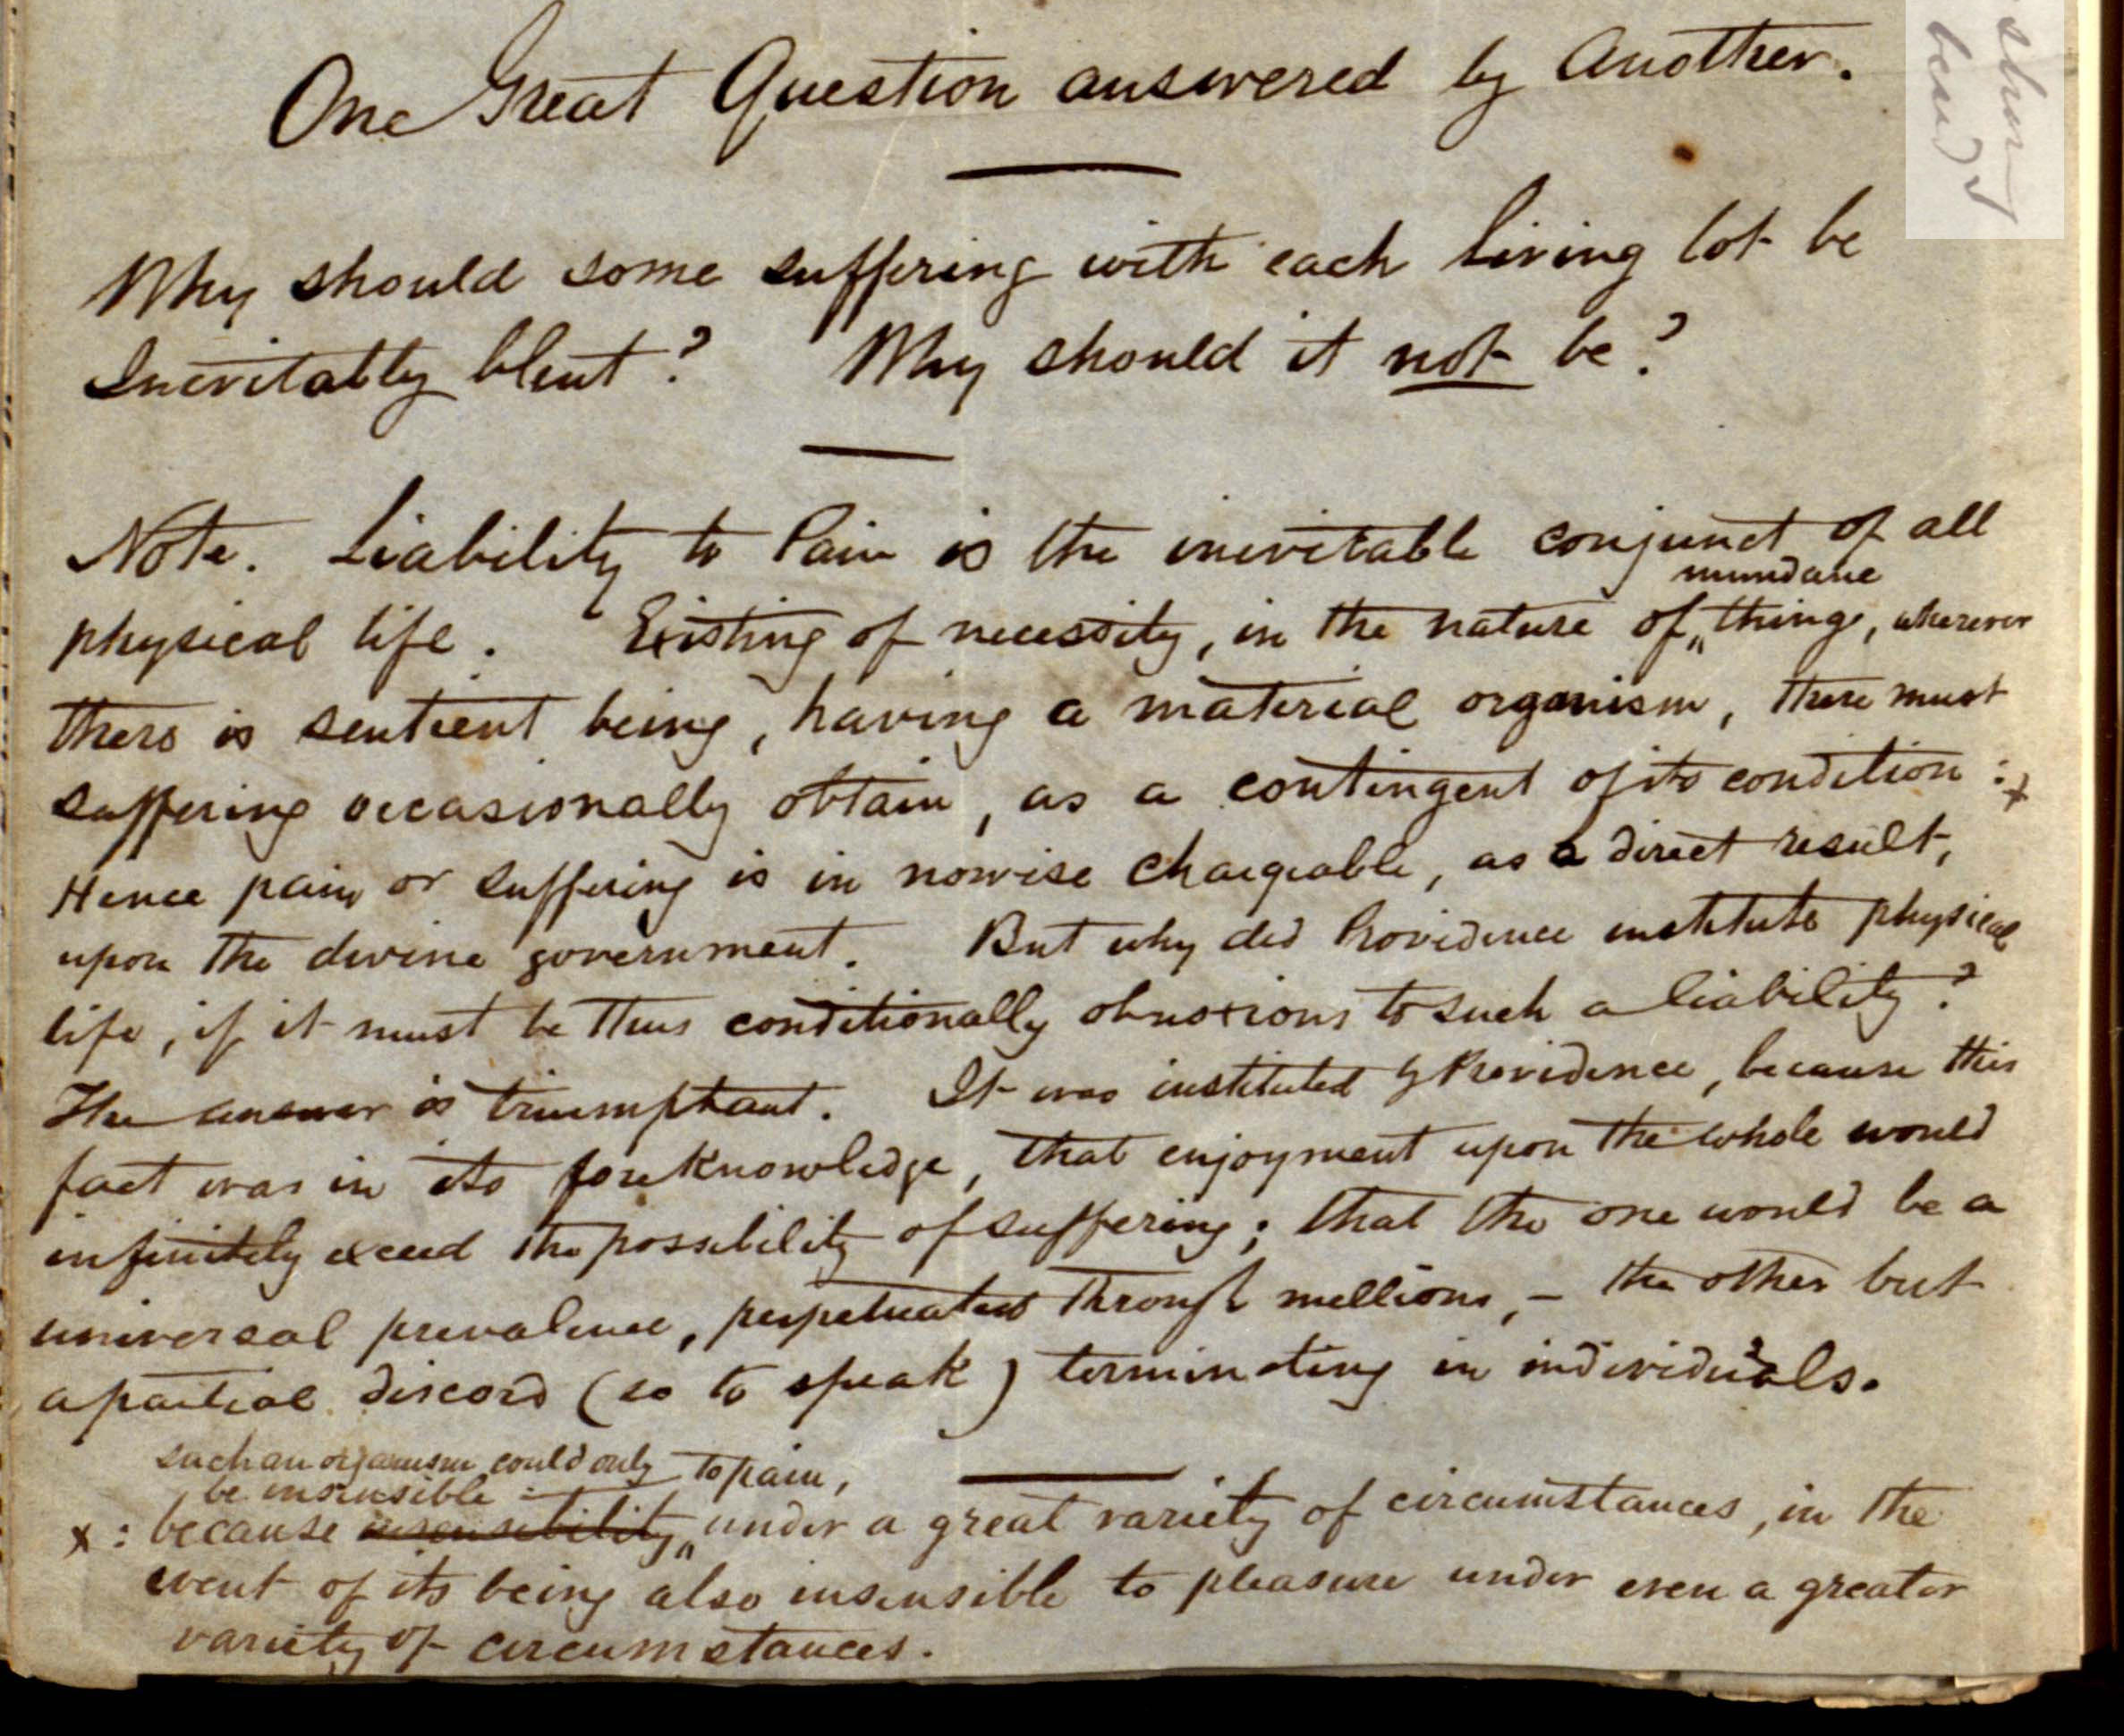 One Great Question answered by Another.
Why should some suffering with each living lot be
Inevitably blent? Why should it not be?
Note. Liability to Pain is the inevitable conjunct of all
mundane
physical life. Existing of necessity, in the nature of things, wherever
there is sentient being, having a material organism, there must
suffering occasionally obtain, as a contingent of its condition :x
Hence pain or suffering is in nowise chargeable, as a direct result,
upon the divine government. But why did Providence institute physical
life, if it must be thus conditionally obnoxious to such a liability?
The answer is triumphant. It was instituted by Providence, because this
fact was in its foreknowledge, that enjoyment upon the whole would
infinitely exceed the possibility of suffering; that the one would be a
universal prevalence, perpetuated through millions, – the other but
a partial discord (so to speak) terminating in individuals.
such an organism could only to pain,
be insensible
x : because insensibility under a great variety of circumstances, in the
event of its being also insensible to pleasure under even a greater
variety of circumstances.
short